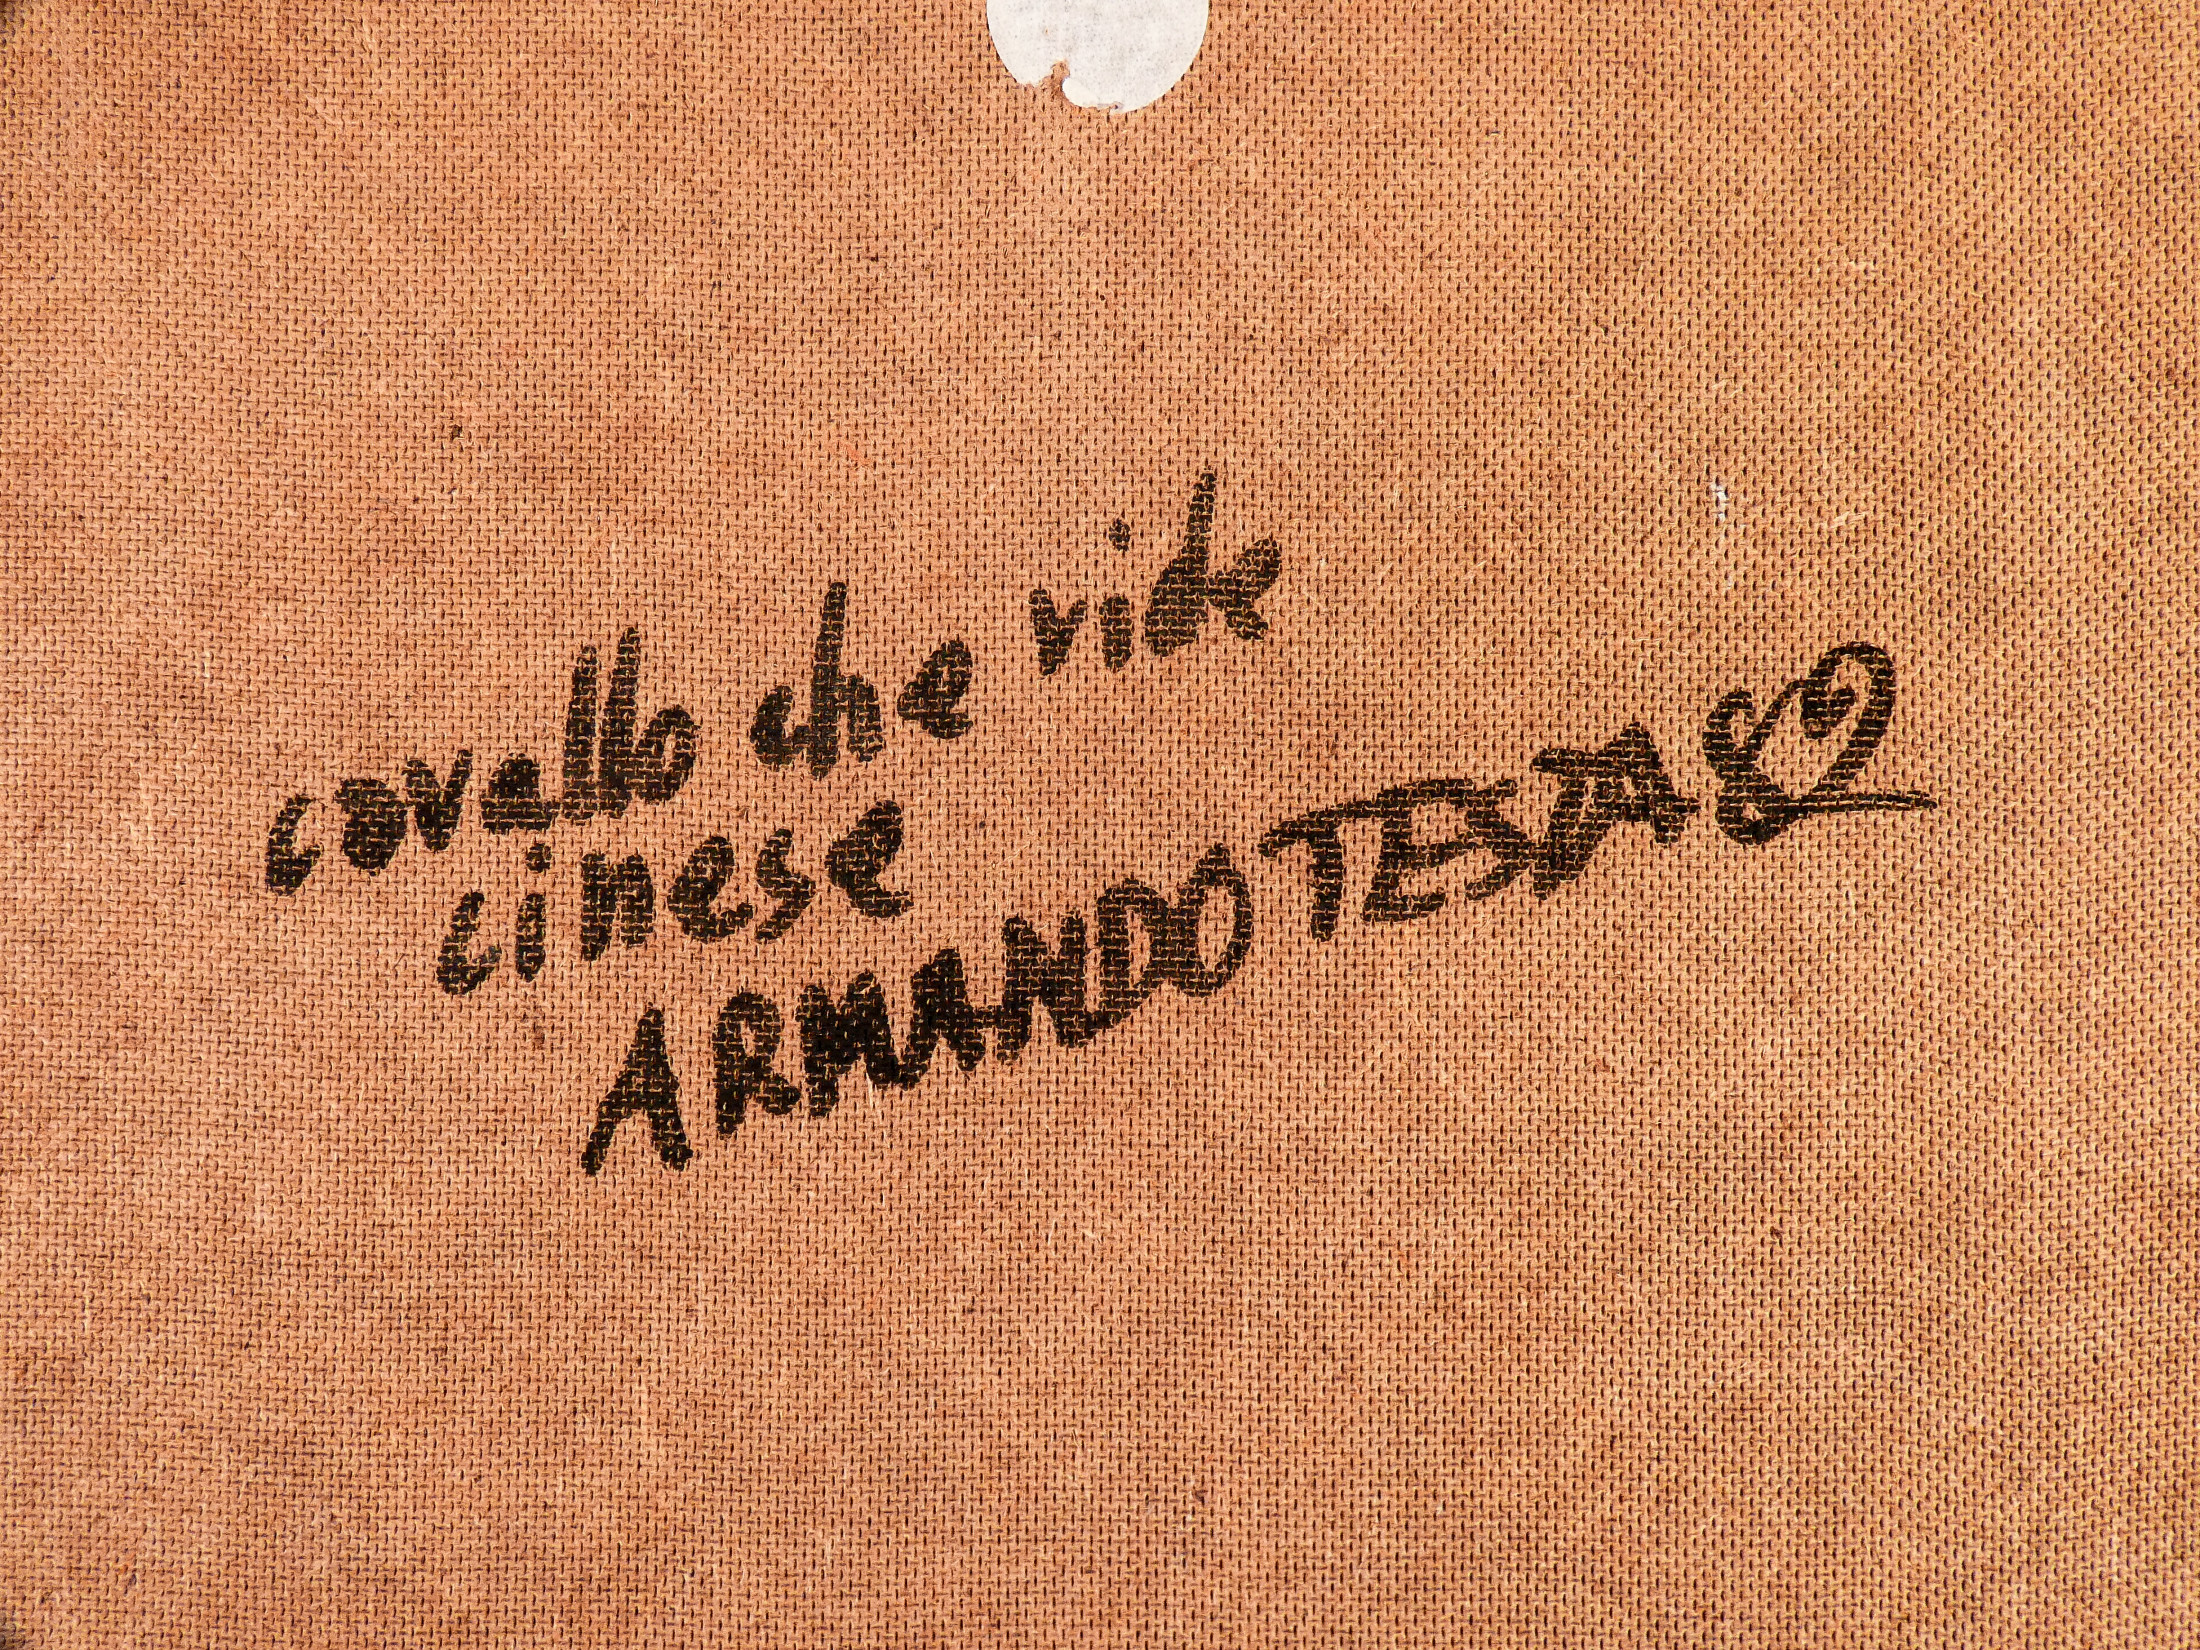 cavallo che ride
cinese
ARMANDO TESTA 82